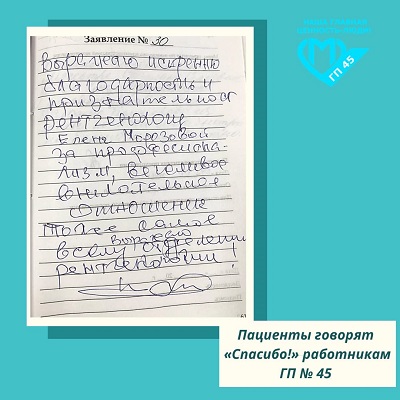 НАША ГЛАВНАЯ
ЦЕННОСТЬ-ЛЮДИ!
ГП 45
Заявление № 30
выражаю искренню
благодарность и
признательност
рентгенологу
Елене Морозовой
за профессиона-
лизм, вежливое
внимательное
отношение
тоже самое
выражаю
всему отделению
рентгенологии!
Пациенты говорят
«Спасибо!» работникам
ГП № 45